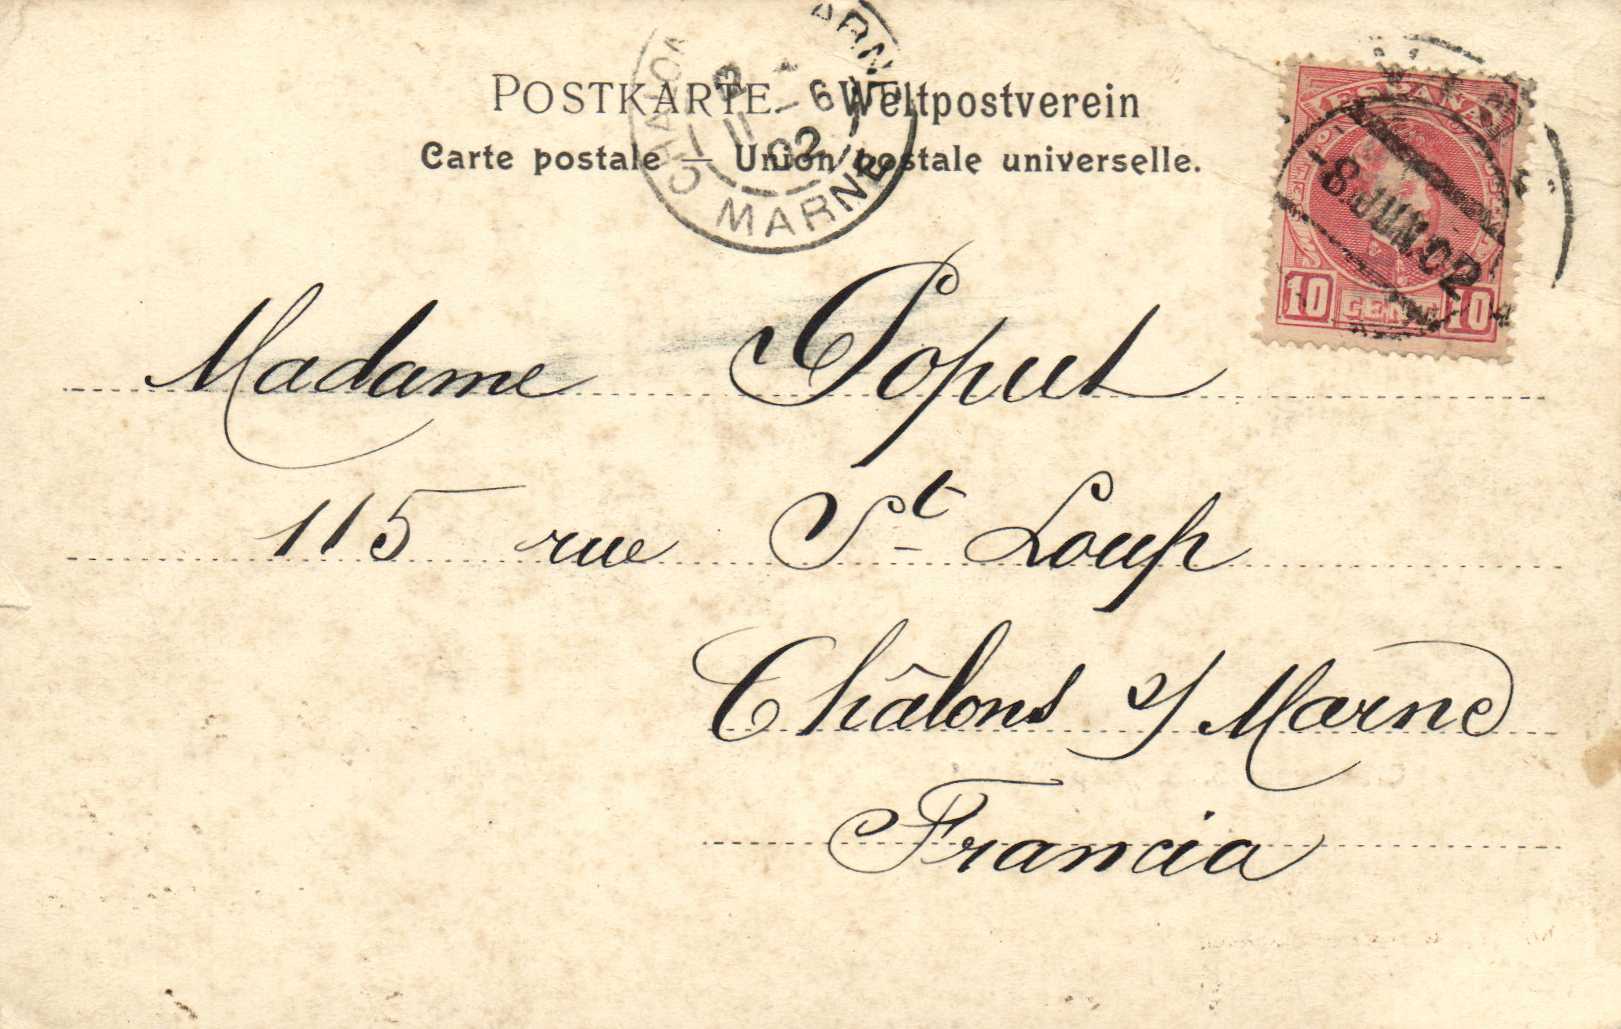 POSTKARTE. — Weltpostverein
Carte postale — Union postale universelle.
CHALONS MARNE
2
11 - 6
02
MARNE
ESPAÑA
-8.JUN.02
10 CENT 10
Madame Poput
115 rue St Loup
Châlons s/ Marne
Francia